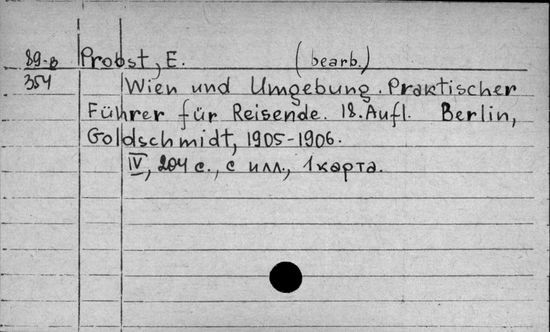 89-8 Probst, E. (bearb.)
354 Wien und Umgebung. Praktischer
Führer für Reisende. 18. Aufl. Berlin,
Goldschmidt, 1905-1906.
IV, 204 с., с илл., 1 карта.